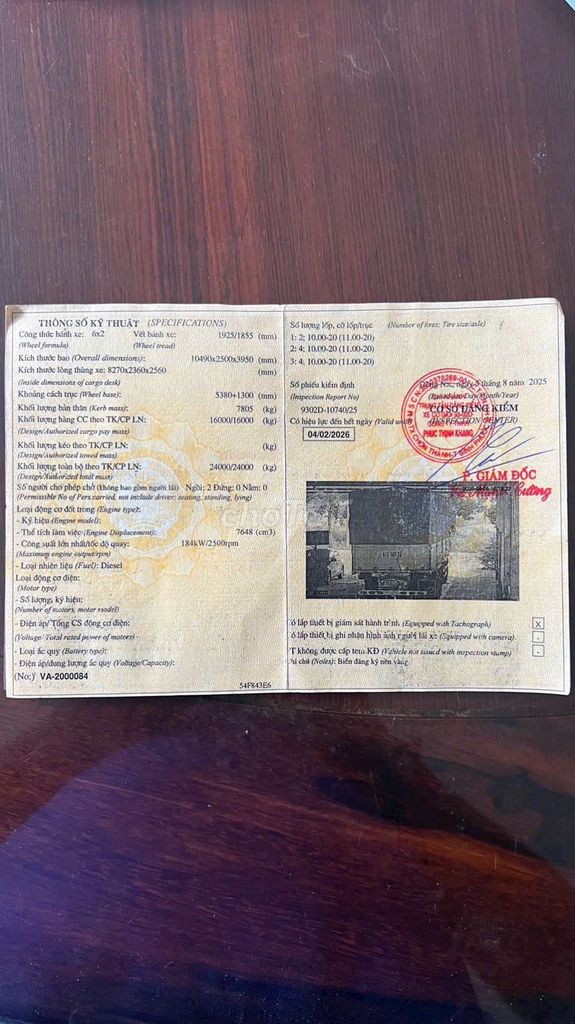 THÔNG SỐ KỸ THUẬT (SPECIFICATIONS)
Công thức bánh xe: 6x2 Vết bánh xe: 1925/1855 (mm)
(Wheel formula) (Wheel tread)
Kích thước bao (Overall dimensions): 10490x2500x3950 (mm)
Kích thước lòng thùng xe: 8270x2360x2560 (mm)
(Inside dimensions of cargo desk)
Khoảng cách trục (Wheel base): 5380+1300 (mm)
Khối lượng bản thân (Kerb mass): 7805 (kg)
Khối lượng hàng CC theo TK/CP LN: 16000/16000 (kg)
(Design/Authorized cargo pay mass)
Khối lượng kéo theo TK/CP LN: (kg)
(Design/Authorized towed mass)
Khối lượng toàn bộ theo TK/CP LN: 24000/24000 (kg)
(Design/Authorized total mass)
Số người cho phép chở (không bao gồm người lái) Ngồi: 2 Đứng: 0 Nằm: 0
(Permissible No of Pers.carried, not include driver: seating, standing, lying)
Loại động cơ đốt trong (Engine type):
- Ký hiệu (Engine model):
- Thể tích làm việc (Engine Displacement): 7648 (cm3)
- Công suất lớn nhất/tốc độ quay: 184kW/2500rpm
(Maximum engine output/rpm)
- Loại nhiên liệu (Fuel): Diesel
Loại động cơ điện:
(Motor type)
- Số lượng, ký hiệu:
(Number of motors, motor model)
- Điện áp/Tổng CS động cơ điện:
(Voltage/ Total rated power of motors)
- Loại ắc quy (Battery type):
- Điện áp/dung lượng ắc quy (Voltage/Capacity):
(No:) VA-2000084
54F843E6
Số lượng lốp, cỡ lốp/trục (Number of tires: Tire size/axle)
1: 2; 10.00-20 (11.00-20)
2: 4; 10.00-20 (11.00-20)
3: 4; 10.00-20 (11.00-20)
Số phiếu kiểm định Đồng Nai, ngày 5 tháng 8 năm 2025
(Inspection Report No) Day/Month/Year)
9302D-10740/25 CƠ SỞ ĐĂNG KIỂM
Có hiệu lực đến hết ngày (Valid until) (INSPECTION CENTER)
04/02/2026
PHÚC THỊNH KHANG
P. GIÁM ĐỐC
Cường
ó lắp thiết bị giám sát hành trình (Equipped with Tachograph) X
ó lắp thiết bị ghi nhận hình ảnh người lái xe (Equipped with camera) -
T không được cấp tem KĐ (Vehicle not issued with inspection stamp) -
hi chú (Notes): Biển đăng ký nền vàng